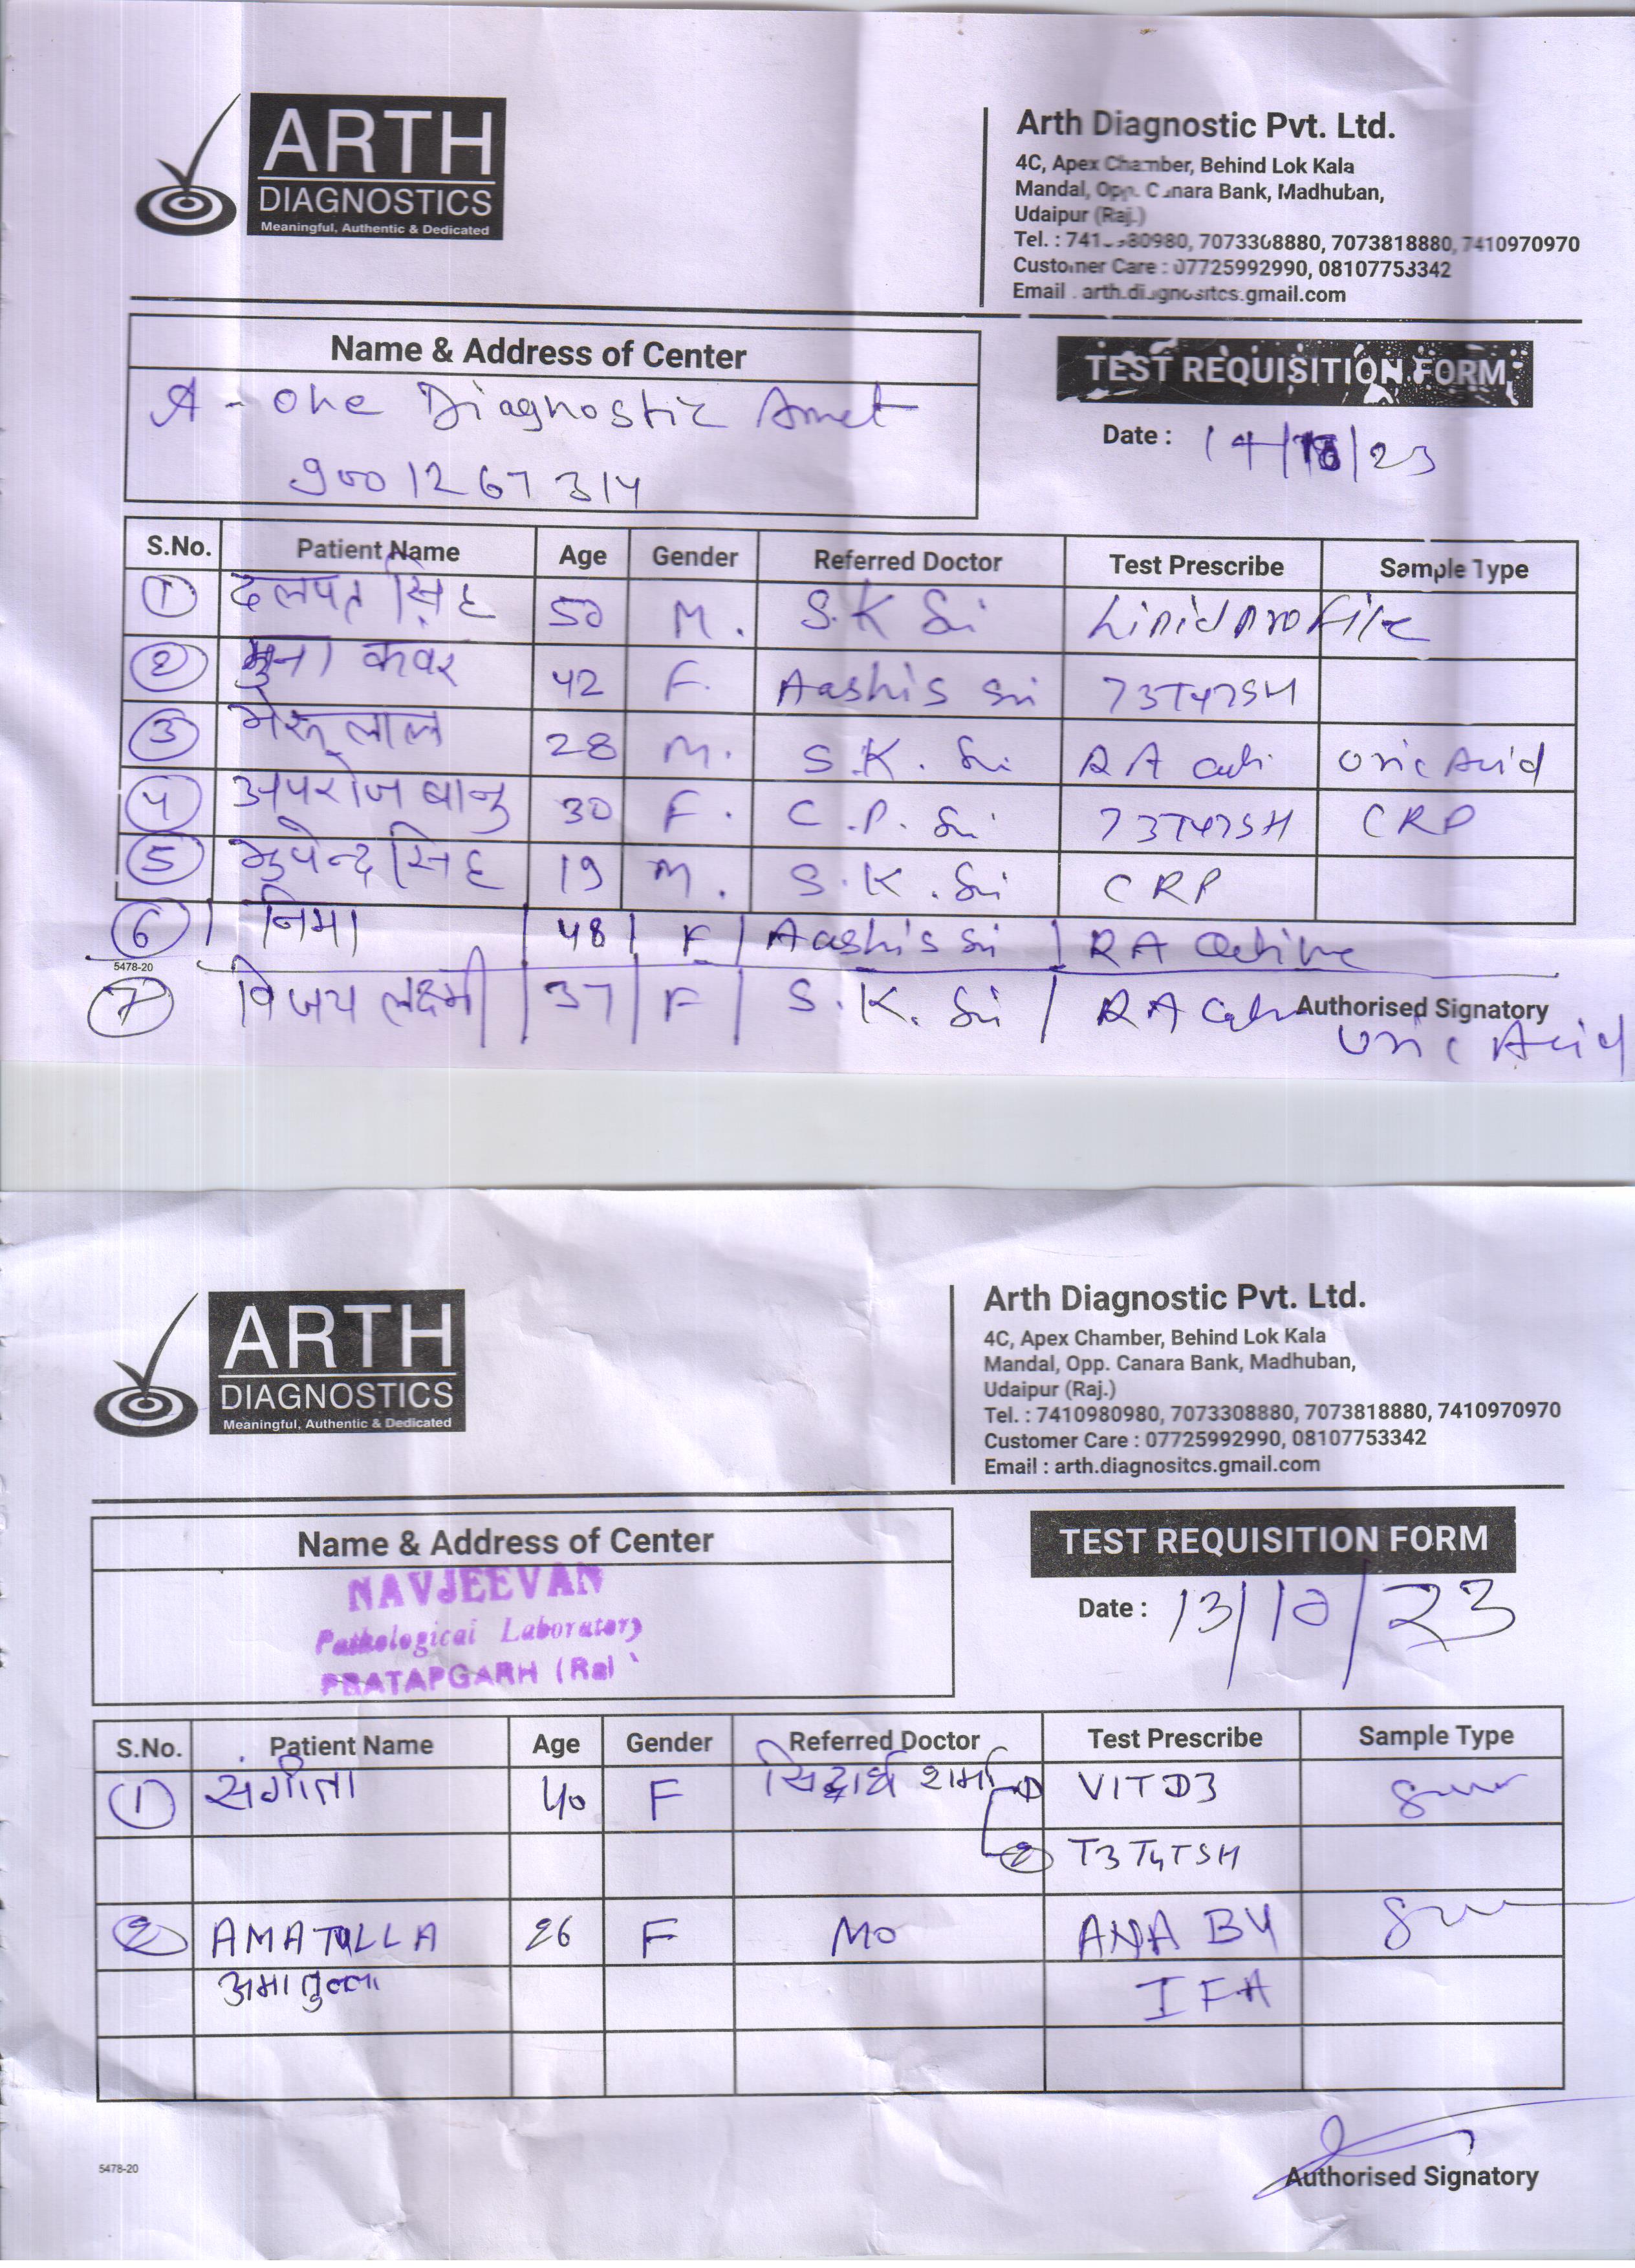 ARTH
DIAGNOSTICS
Meaningful, Authentic & Dedicated
Arth Diagnostic Pvt. Ltd.
4C, Apex Chamber, Behind Lok Kala
Mandal, Opp. Canara Bank, Madhuban,
Udaipur (Raj.)
Tel. : 7073308880, 7073818880, 7410970970
Customer Care : 07725992990, 08107753342
Email arth.diagnositcs.gmail.com
Name & Address of Center
TEST REQUISITION FORM
A - One Diagnostic Amet
9001267314
Date : 14/ /23
S.No. Patient Name Age Gender Referred Doctor Test Prescribe Sample Type
1 दलपत सिंह 50 M. S.K Sri Lipid profile
2 कवर 42 F. Aashis Sri T3T4TSH
3 भेरू लाल 28 M. S.K. Sri RA Uric Acid
4 अपरोज बानु 30 F. C.P. Sri T3T4TSH CRP
5 भुपेन्द्र सिंह 19 M. S.K. Sri CRP
6 निमा 48 F Aashis Sri RA
5478-20
7 विजय लक्ष्मी 37 F S.K. Sri RA
Authorised Signatory
Uric Acid
ARTH
DIAGNOSTICS
Meaningful, Authentic & Dedicated
Arth Diagnostic Pvt. Ltd.
4C, Apex Chamber, Behind Lok Kala
Mandal, Opp. Canara Bank, Madhuban,
Udaipur (Raj.)
Tel. : 7410980980, 7073308880, 7073818880, 7410970970
Customer Care : 07725992990, 08107753342
Email : arth.diagnositcs.gmail.com
Name & Address of Center
TEST REQUISITION FORM
NAVJEEVAN
Pathological Laboratory
PRATAPGARH (Raj
Date : 13/10/23
S.No. Patient Name Age Gender Referred Doctor Test Prescribe Sample Type
1 संगीता 40 F सिद्धार्थ शर्मा 1 VIT D3
2 T3T4TSH
2 AMATULLA 26 F MO ANA BY
अमातुल्ला IFA
5478-20
Authorised Signatory